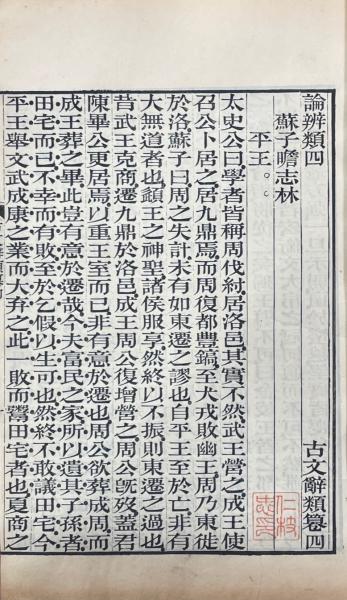 論辨類四 古文辭類纂四
蘇子瞻志林
平王
太史公曰學者皆稱周伐紂居洛邑其實不然武王營之成王使
召公卜居之居九鼎焉而周復都豐鎬至犬戎敗幽王周乃東徙
於洛蘇子曰周之失計未有如東遷之謬也自平王至於亡非有
大無道者也頿王之神聖諸侯服享然終以不振則東遷之過也
昔武王克商遷九鼎於洛邑成王周公復增營之周公旣歿蓋君
陳畢公更居焉以重王室而已非有意於遷也周公欲葬成周而
成王葬之畢此豈有意於遷哉今夫富民之家所以遺其子孫者
田宅而已不幸而有敗至於乞假以生可也然終不敢議田宅今
平王舉文武成康之業而大弃之此一敗而鬻田宅者也夏商之